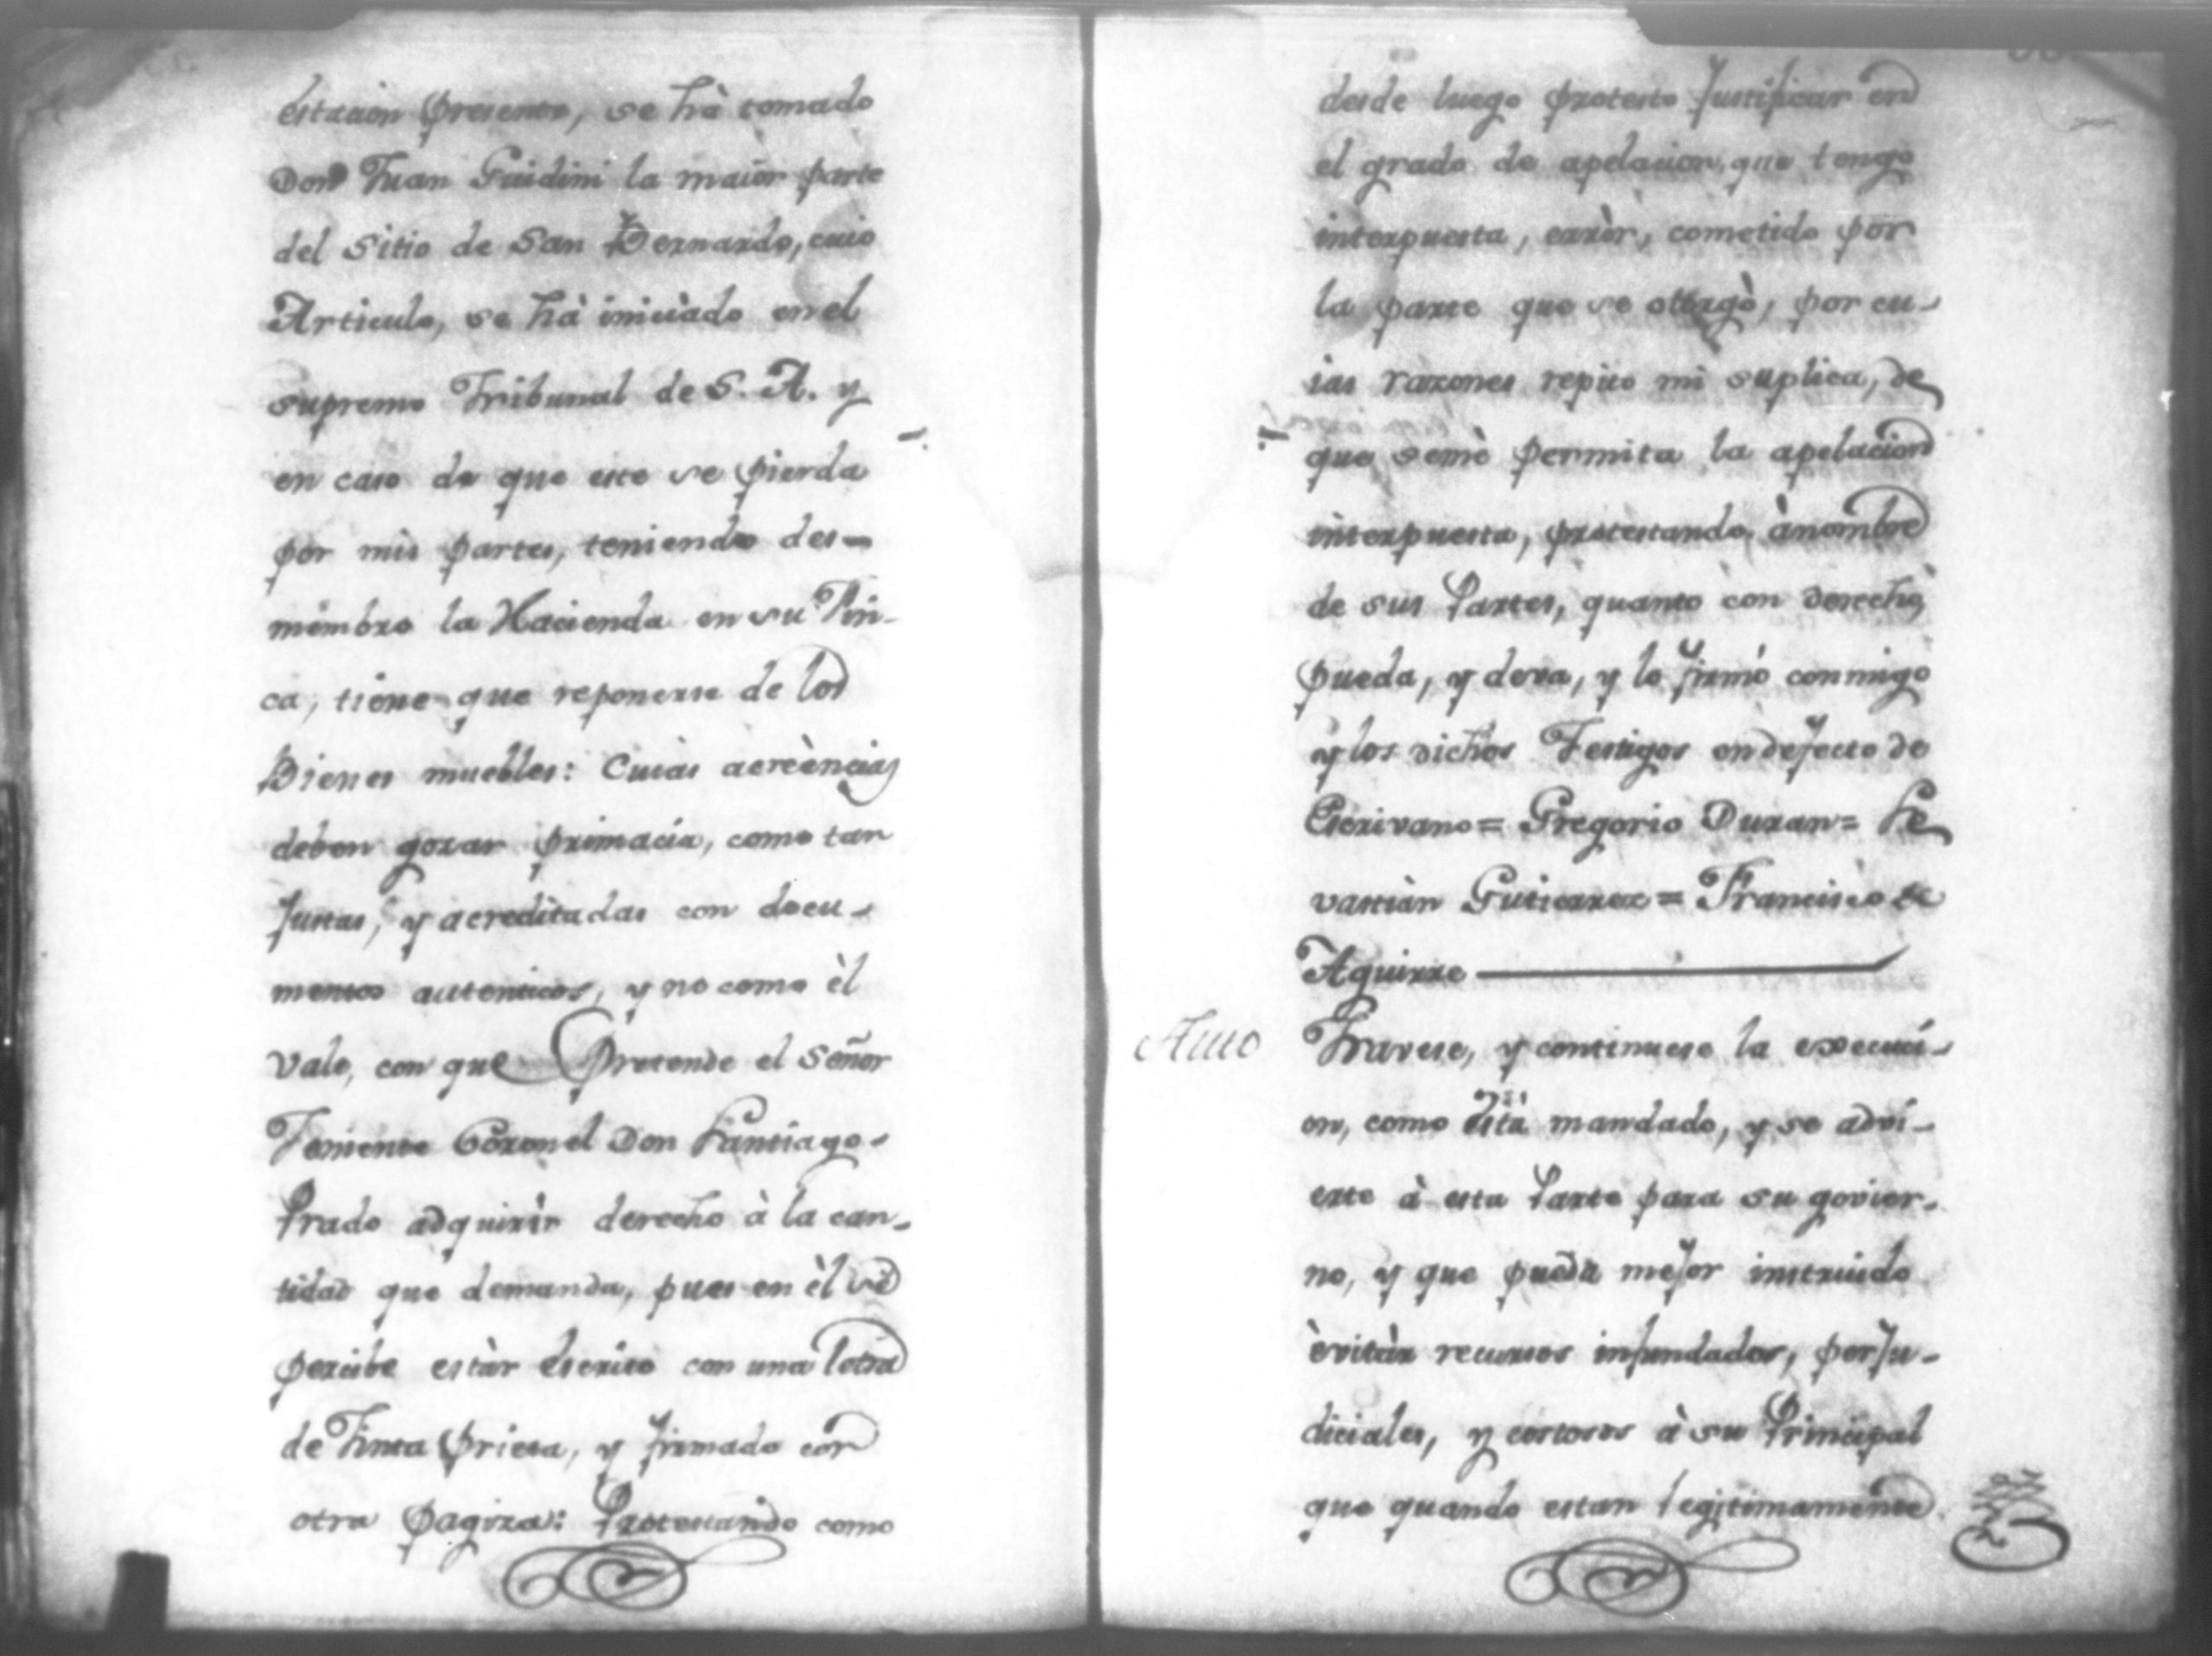 estacion presente, se hà tomado
Don Juan Guidini la maior parte
del sitio de San Bernardo, cuio
Articulo, se hà iniciado en el
supremo Tribunal de S. A. y
en caso de que este se pierda
por mis partes, teniendo des-
membro la Hacienda en su Fin-
ca, tiene que reponerse de los
Bienes muebles: Cuias acreencias
deben gozar primacia, como tan
Justas, y acreditadas con docu-
mentos autenticos, y no como èl
Vale, con que Pretende el Señor
Teniente Coronel Don Santiago
Prado adquirir derecho à la can-
tidad que demanda, pues en èl se
percibe estàr escrito con una letra
de Tinta Prieta, y firmado con
otra Pagiza: Protestando como
desde luego protesto Justificar en
el grado de apelacion que tengo
interpuesta, erròr, cometido por
la parte que se otorgò, por cu-
ias razones repito mi suplica, de
que semè permita la apelacion
interpuesta, protestando ànombre
de sus Partes, quanto con derecho
pueda, y deva, y lo firmó conmigo
y los dichos Testigos en defecto de
Escrivano = Gregorio Duran = Se
vastiàn Gutierrez = Francisco de
Aguirre
Auto Travese, y continuese la execuci-
on, como està mandado, y se advi-
erte à esta Parte para su govier-
no, y que pueda mejor instruido
èvitàr recursos infundados, perJu-
diciales, y costosos à su Principal
que quando estan legitimamente